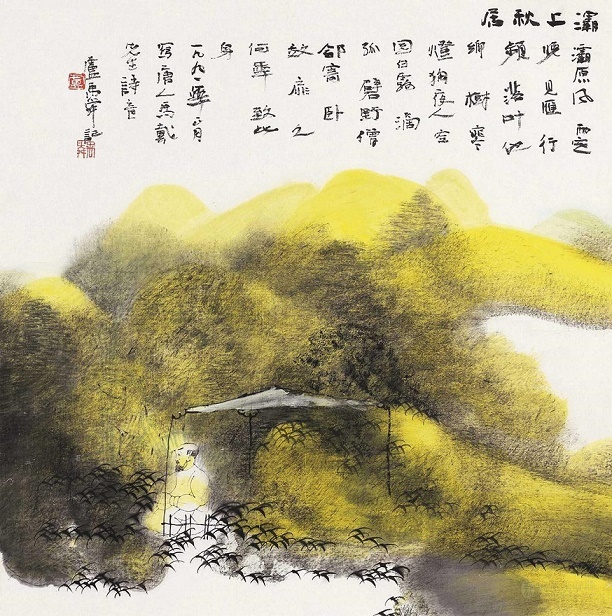 灞上秋居
灞原风雨定
晚見雁行
頻落叶他
鄉樹寒
燈独夜人空
园白露滴
孤壁野僧
邻寄卧
故扉久
何年致此
身
一九九一年月
寫唐人馬戴
先生詩意
盧禹舜記